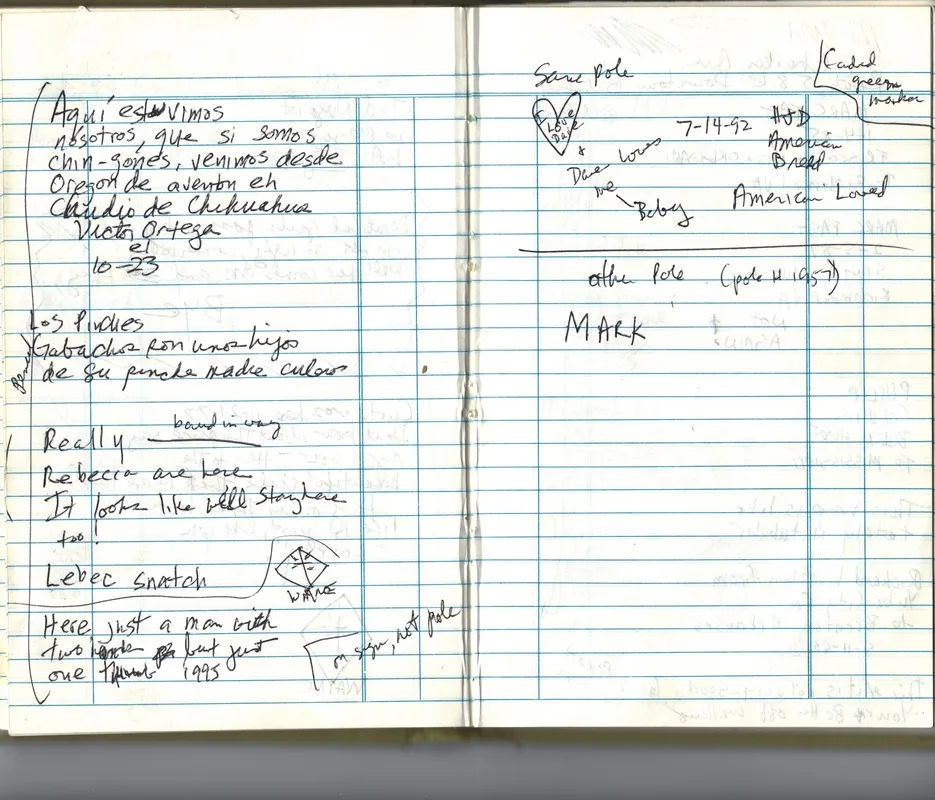 Aquí estuvimos
nosotros, que si somos
chin-gónes, venimos desde
Oregon de aventon eh
Claudio de Chihuahua
Victor Ortega
el
10-23
Los Pinches
Gabachos son unos hijos
de su pinche madre culeros
Really bound in way
Rebecca are here
It looks like we'll stay here
too!
Lebec snatch
Here just a man with
two hands but just
one thumb 1995
on sign, not pole
Same pole
Faded
green
marker
I Love
Dave
+
Dave Loves
me
Baby
7-14-92
H&D
American
Bread
American Loved
other Pole (pole # 1957)
MARK